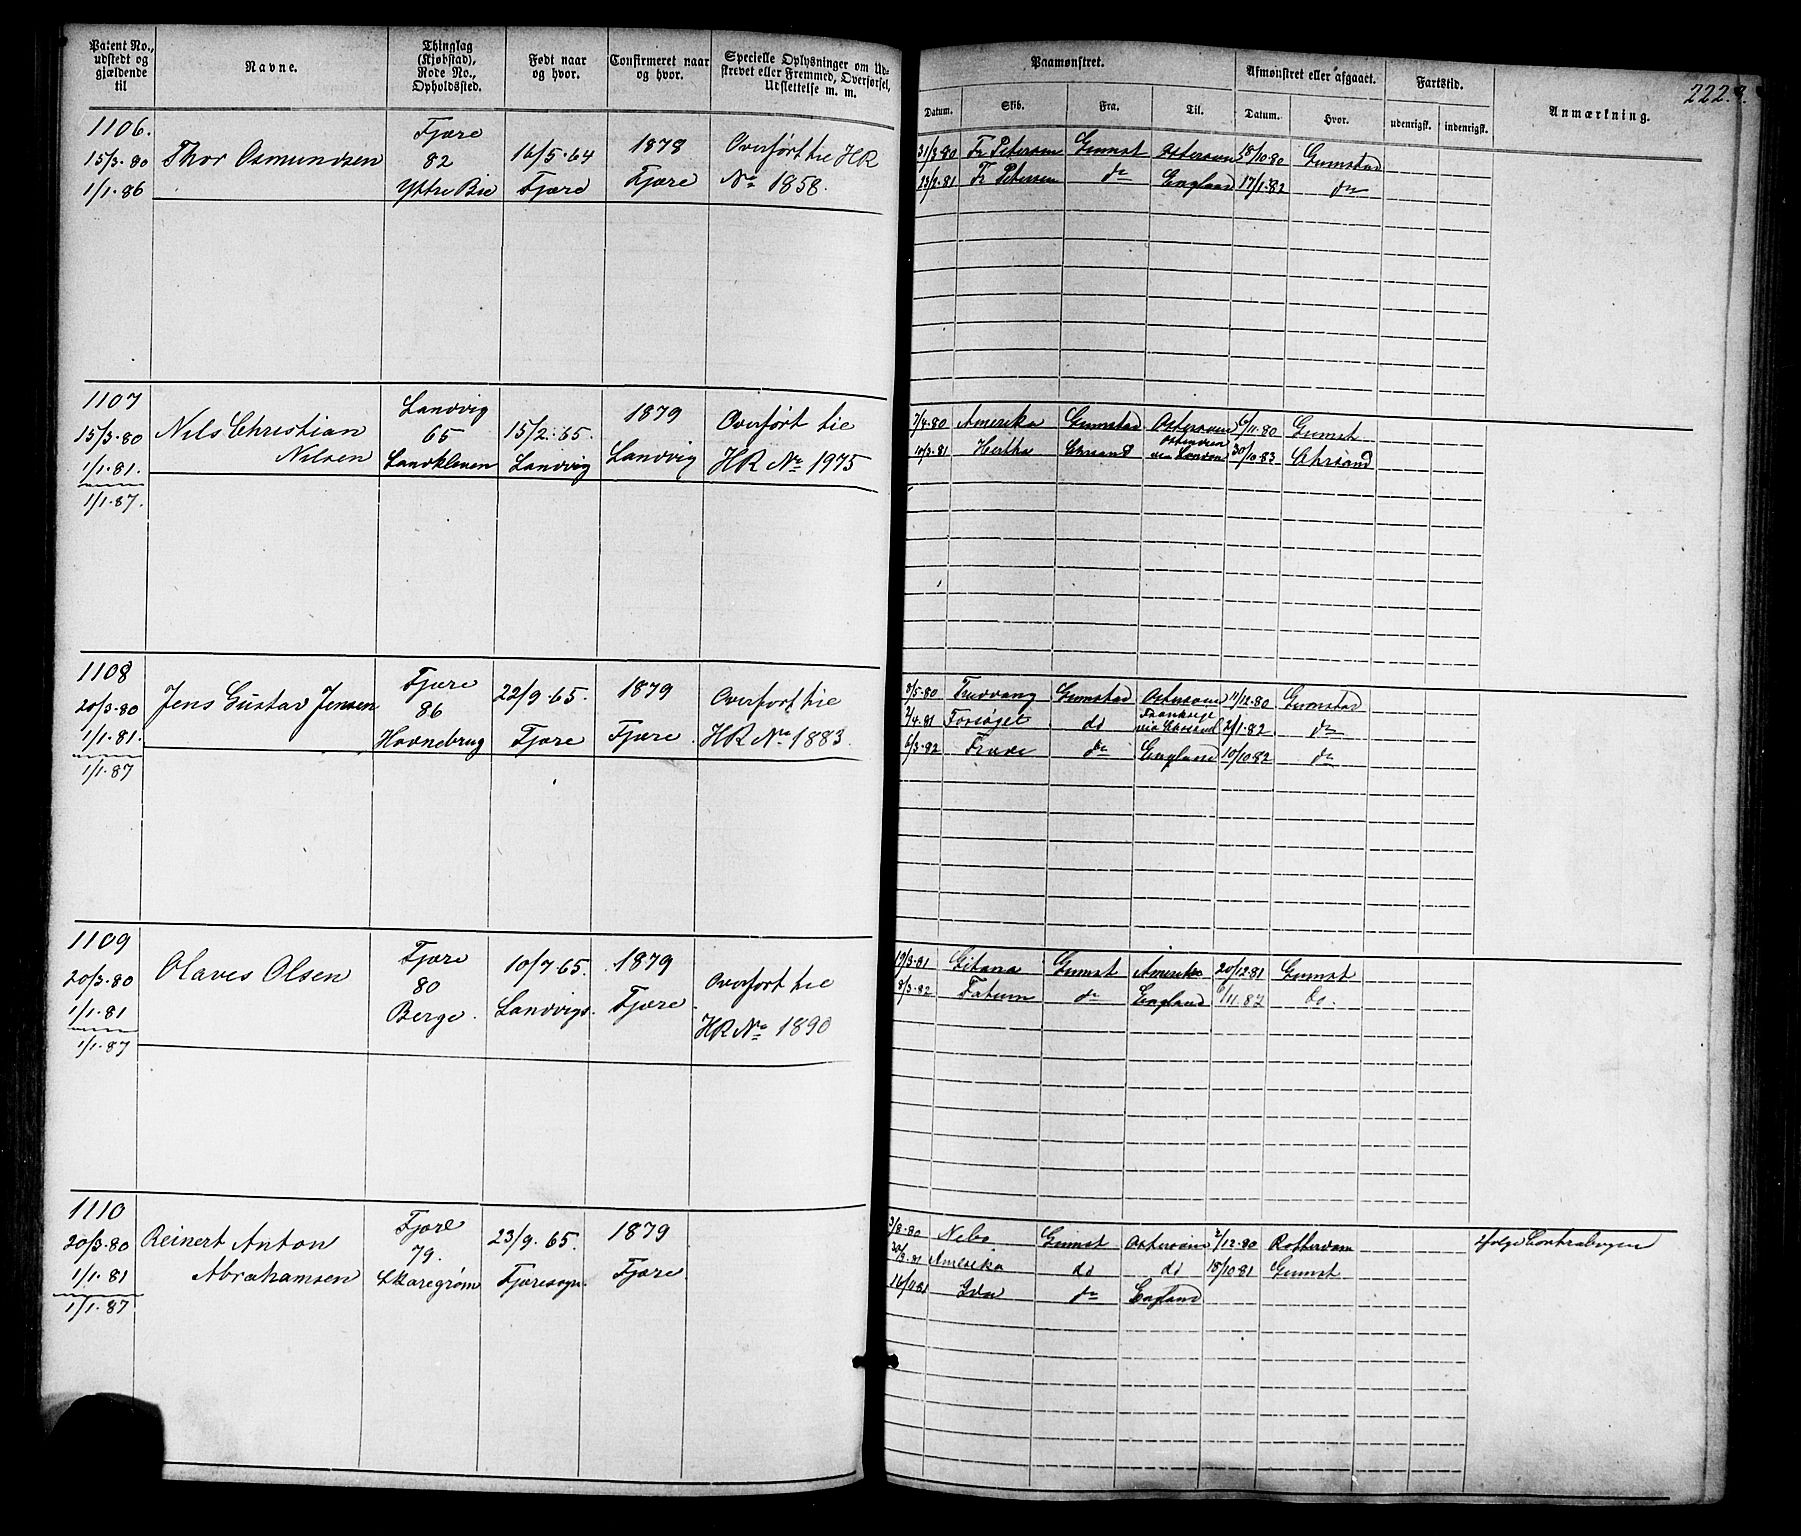 Patent No., udstedt og gjældende til
Navne.
Thinglag (Kjøbstad), Rode No., Opholdssted.
Født naar og hvor.
Confirmeret naar og hvor.
Specielle Oplysninger om Udskrevet eller Fremmed, Overførsel, Udslettelse m. m.
Paamønstret.
Afmønstret eller afgaaet.
Fartstid.
Anmærkning.
222.
Datum.
Skib.
Fra.
Til.
Datum.
Hvor.
udenrigsk.
indenrigsk.
1106.
15/3.80
1/1.86
Thor Osmundsen
Fjære
82
Yttre Bie
16/5.64
Fjære
1878
Fjære
Overført til HR
No 1858.
31/3.80 Fr Petersen Grmst Østersøen 18/10.80 Grmstad
23/2.81 Fr Petersen do England 17/1.82 do
1107
15/3.80
1/1.81.
1/1.87.
Nils Christian
Nilsen
Landvig
65
Landkleven
15/2.65.
Landvig
1879
Landvig
Overført til
HR No 1975
7/4.80 Amerika Grmstad Østersøen 6/11.80 Grmst
10/3.81 Hertha Chrsand Østersøen via London 30/10.83 Chrsand
1108
20/3.80
1/1.81.
1/1.87
Jens Gustav Jensen
Fjære
86
Havnebrug
22/9.65.
Fjære
1879
Fjære.
Overført til
HR No 1883.
8/5.80 Trudvang Grmstad Østersøen 11/12.80 Grmstad
2/4.81 Forsøget do Frankrige via Chrsand 2/1.82 do
6/3.82 do England 10/10.82 do
1109
20/3.80
1/1.81
1/1.87
Olaves Olsen
Fjære
80
Berge.
10/7.65.
Landvigs.
1879
Fjære
Overført til
HR No 1890
19/3.81 Gitana Grmst Amerika 20/12.81 Grmst
8/3.82 Fatum do England 6/11.82 do.
1110
20/3.80
1/1.81
1/1.87
Reinert Anton
Abrahamsen
Fjære
79.
Skaregrøm
23/9.65.
Fjæresogn
1879
Fjære.
3/8.80 Nebo Grmst Østersøen 2/12.80 Rotterdam
30/3.81 Amerika do do 18/10.81 Grmst
16/11.81 Ida do England
ifølge Contrabogen